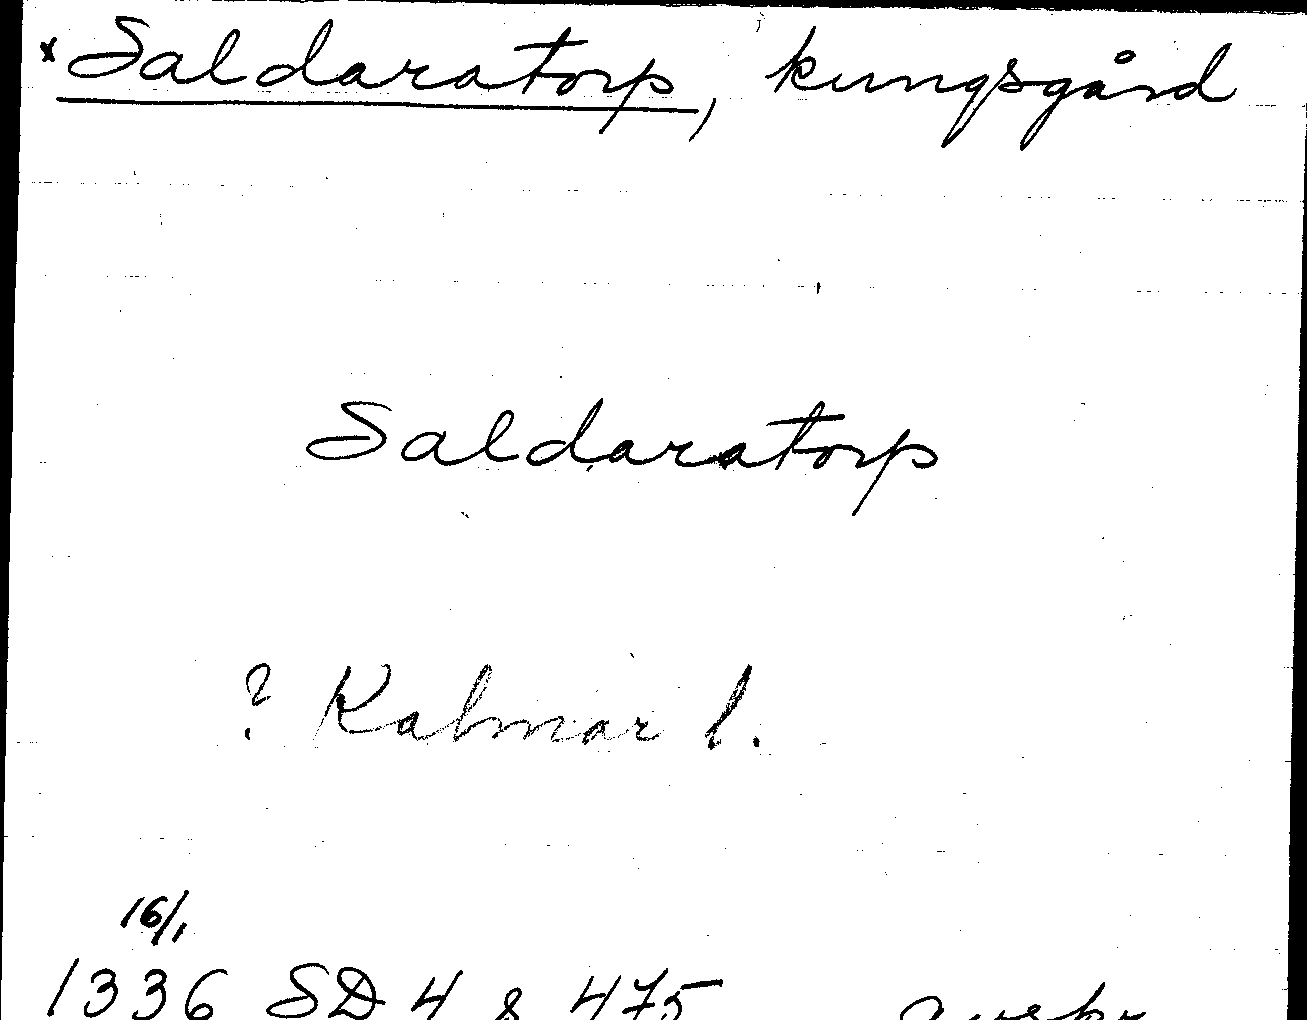 *Saldaratorp, kungsgård
Saldaratorp
? Kalmar l.
16/1
1336 SD 4 s 475 avskr